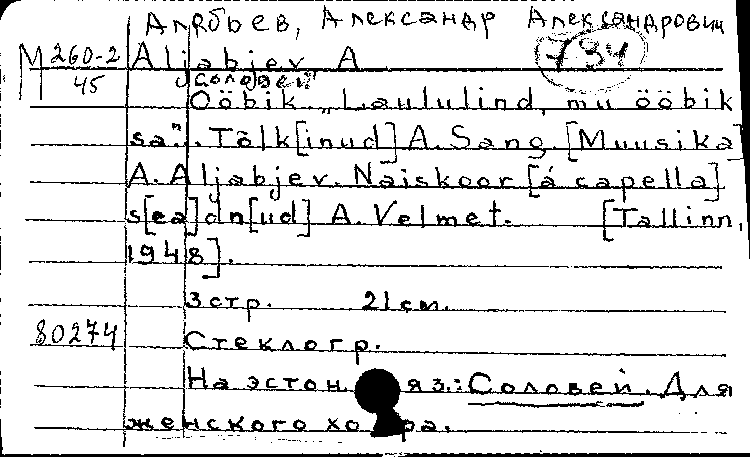 Алябьев, Александр Александрович
М 260-2 Aljabjev, A 794
45 "Соловей"
Ööbik. „Laululind, mu ööbik
sa”.. Tõlk[inud] A. Sang. [Muusika]
A. Aljabjev. Naiskoor [á capella]
s[ea]dn[ud] A. Velmet. [Tallinn,
1948].
3 стр. 21 см.
80274 Стеклогр.
На эстон. яз.: Соловей. Для
женского хора.